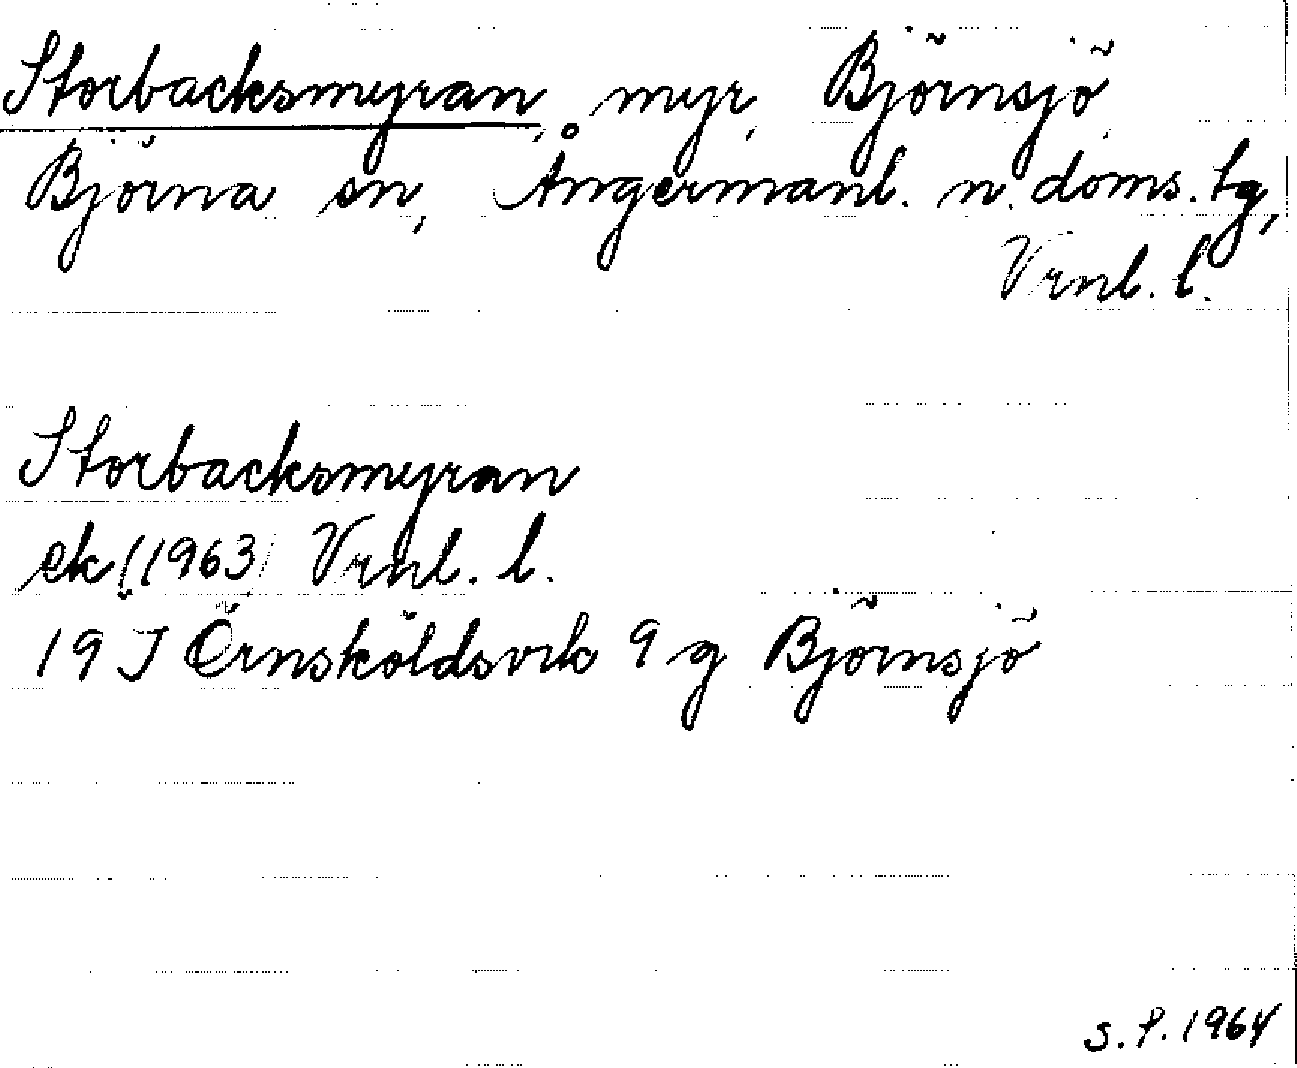 Storbacksmyran, myr, Björnsjö,
Björna sn, Ångermanl. n. doms. tg,
Vrnl. l.
Storbacksmyran
ek (1963) Vrnl. l.
19 J Örnsköldsvik 9 g Björnsjö
S. P. 1964